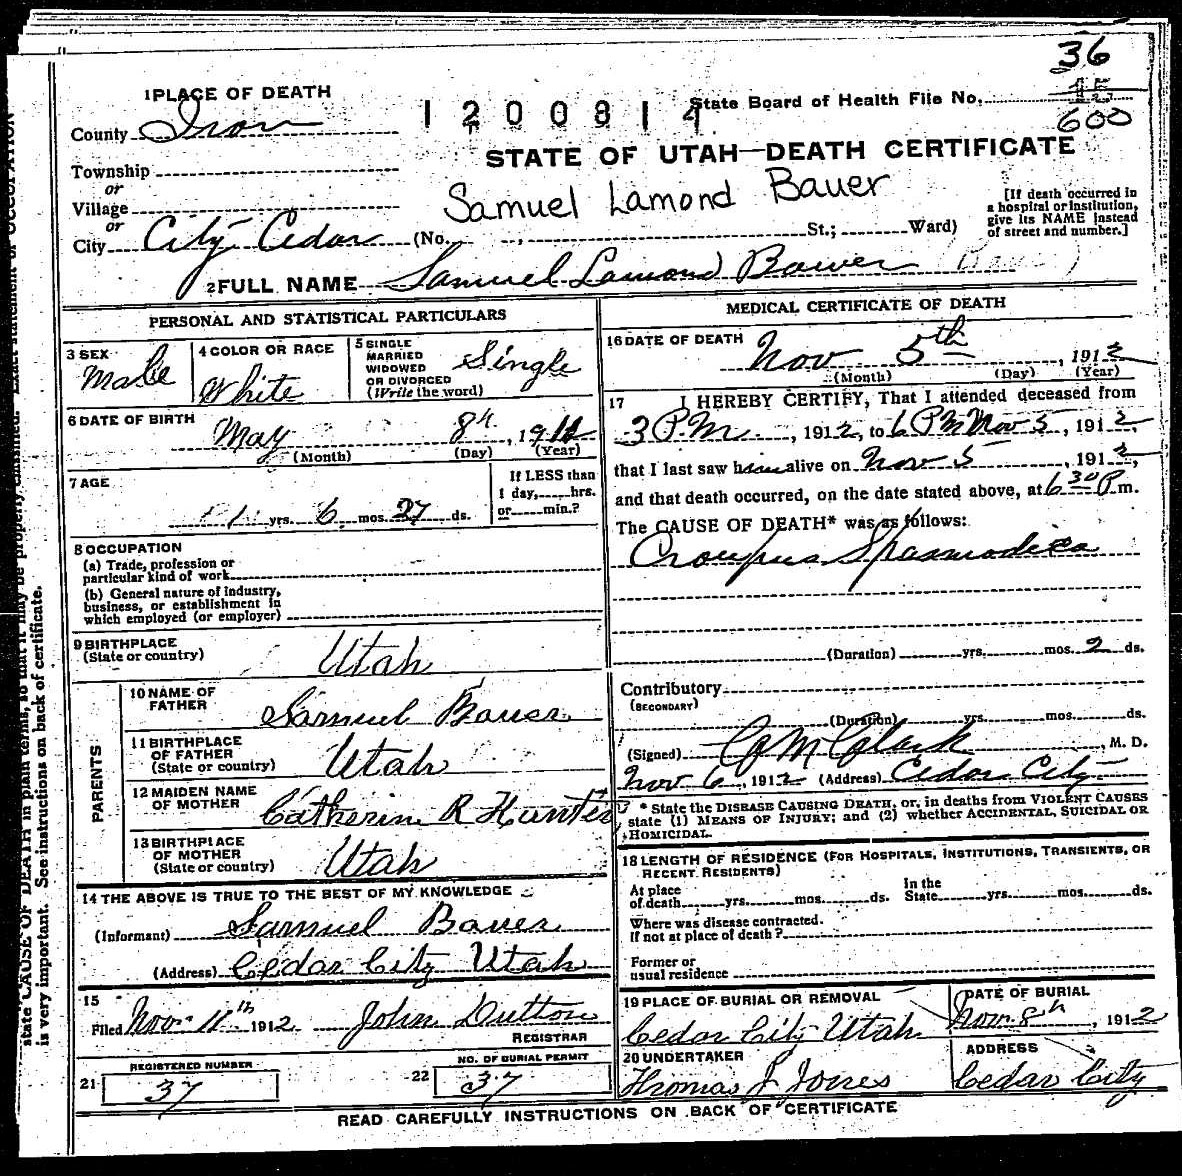 36
1 PLACE OF DEATH
1200814 State Board of Health File No. 15
600
County Iron
STATE OF UTAH—DEATH CERTIFICATE
Township
or
Village
Samuel Lamond Bauer
[If death occurred in
a hospital or institution,
give its NAME instead
of street and number.]
or
City City Cedar (No. , St.; Ward)
2 FULL NAME Samuel Lamond Bower
PERSONAL AND STATISTICAL PARTICULARS
3 SEX Male
4 COLOR OR RACE White
5 SINGLE
MARRIED
WIDOWED
OR DIVORCED
(Write the word) Single
6 DATE OF BIRTH
May 8th, 1911
(Month) (Day) (Year)
7 AGE
1 yrs. 6 mos. 27 ds.
If LESS than
1 day, hrs.
or min.?
8 OCCUPATION
(a) Trade, profession or
particular kind of work
(b) General nature of industry,
business, or establishment in
which employed (or employer)
9 BIRTHPLACE
(State or country) Utah
PARENTS
10 NAME OF
FATHER Samuel Bauer
11 BIRTHPLACE
OF FATHER
(State or country) Utah
12 MAIDEN NAME
OF MOTHER Catherine R Hunter
13 BIRTHPLACE
OF MOTHER
(State or country) Utah
14 THE ABOVE IS TRUE TO THE BEST OF MY KNOWLEDGE
(Informant) Samuel Bauer
(Address) Cedar City Utah
15
Filed Nov 11th 1912 John Dutton
REGISTRAR
REGISTERED NUMBER
21 37
NO. OF BURIAL PERMIT
22 37
MEDICAL CERTIFICATE OF DEATH
16 DATE OF DEATH
Nov 5th, 1912
(Month) (Day) (Year)
17 I HEREBY CERTIFY, That I attended deceased from
3 P.M., 1912, to 6 P M Nov 5, 1912
that I last saw him alive on Nov 5, 1912,
and that death occurred, on the date stated above, at 6 30 P m.
The CAUSE OF DEATH* was as follows:
Croupus Spasmodica
(Duration) yrs. mos. 2 ds.
Contributory
(SECONDARY)
(Duration) yrs. mos. ds.
(Signed) M Clark, M. D.
Nov 6, 1912 (Address) Cedar City
* State the DISEASE CAUSING DEATH, or, in deaths from VIOLENT CAUSES
state (1) MEANS OF INJURY; and (2) whether ACCIDENTAL, SUICIDAL OR
HOMICIDAL.
18 LENGTH OF RESIDENCE (FOR HOSPITALS, INSTITUTIONS, TRANSIENTS, OR
RECENT RESIDENTS)
At place
of death yrs. mos. ds.
In the
State yrs. mos. ds.
Where was disease contracted.
If not at place of death?
Former or
usual residence
19 PLACE OF BURIAL OR REMOVAL
Cedar City Utah
DATE OF BURIAL
Nov 8th, 1912
20 UNDERTAKER
Thomas J Jones
ADDRESS
Cedar City
READ CAREFULLY INSTRUCTIONS ON BACK OF CERTIFICATE
state CAUSE OF DEATH in plain terms, so that it may be properly classified. Exact statement of OCCUPATION
is very important. See instructions on back of certificate.